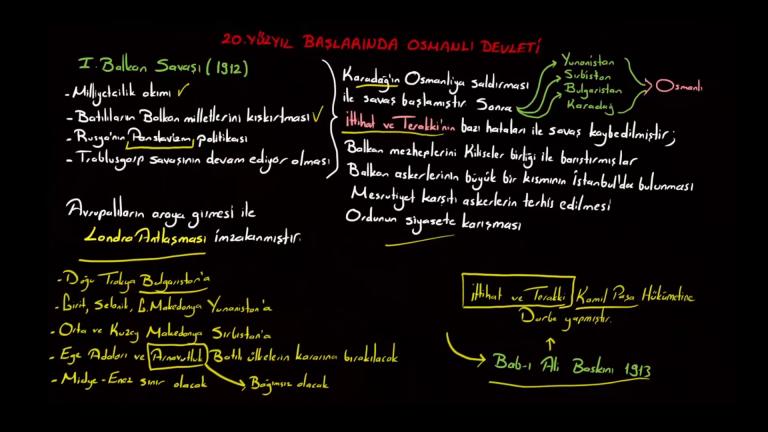 20. YÜZYIL BAŞLARINDA OSMANLI DEVLETİ
I. Balkan Savaşı (1912)
- Milliyetcilik akımı ✓
- Batılıların Balkan milletlerini kışkırtması ✓
- Rusya'nın Panslavizm politikası
- Trablusgarp savaşının devam ediyor olması
Karadağ'ın Osmanlıya saldırması
ile savaş başlamıştır Sonra
İttihat ve Terakki'nin bazı hataları ile savaş kaybedilmiştir;
Balkan mezheplerini Kiliseler birliği ile barıştırmışlar
Balkan askerlerinin büyük bir kısmının İstanbul'da bulunması
Meşrutiyet karşıtı askerlerin terhis edilmesi
Ordunun siyasete karışması
Yunanistan
Sırbistan
Bulgaristan
Karadağ
Osmanlı
Avrupalıların araya girmesi ile
Londra Antlaşması imzalanmıştır.
- Doğu Trakya Bulgaristan'a
- Girit, Selanik, G. Makedonya Yunanistan'a
- Orta ve Kuzey Makedonya Sırbistan'a
- Ege Adaları ve Arnavutluk Batılı ülkelerin kararına bırakılacak
- Midye-Enez sınır olacak
Bağımsız olacak
İttihat ve Terakki Kamil Paşa Hükümetine
Darbe yapmıştır.
Bab-ı Ali Baskını 1913